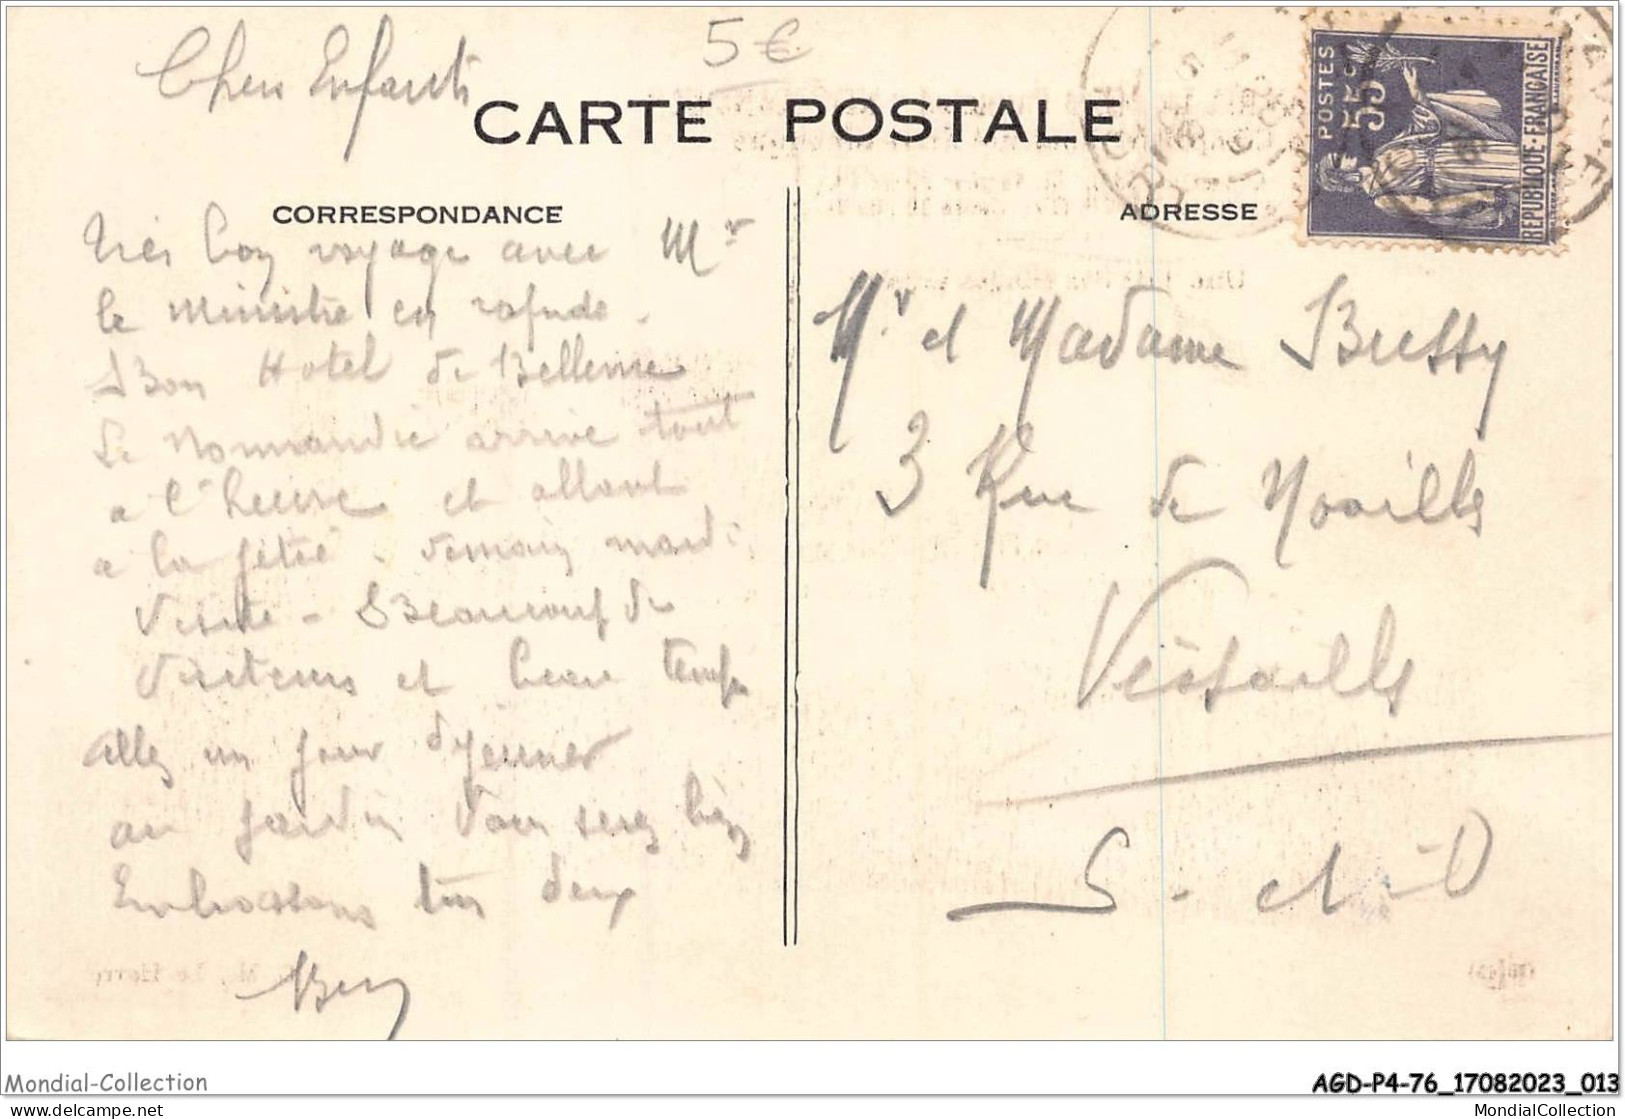 5 €
Chers Enfants
CARTE POSTALE
CORRESPONDANCE
Très bon voyage avec Mr
le Ministre en
Bon Hotel de Bellevue
Le Normandie arrive tout
a l'heure et allant
a la jétée. demain mardi
visite - Beaucoup de
visiteurs et beau temps
allez un jour déjeuner
au jardin vous serez bien
Embrassons tous deux
ADRESSE
POSTES
55c
REPUBLIQUE-FRANÇAISE
Mr et Madame Bussy
3 Rue de Noailles
Versailles
S - et - O
Mondial-Collection
AGD-P4-76_17082023_013
Mondial-collection.delcampe.net
MondialCollection